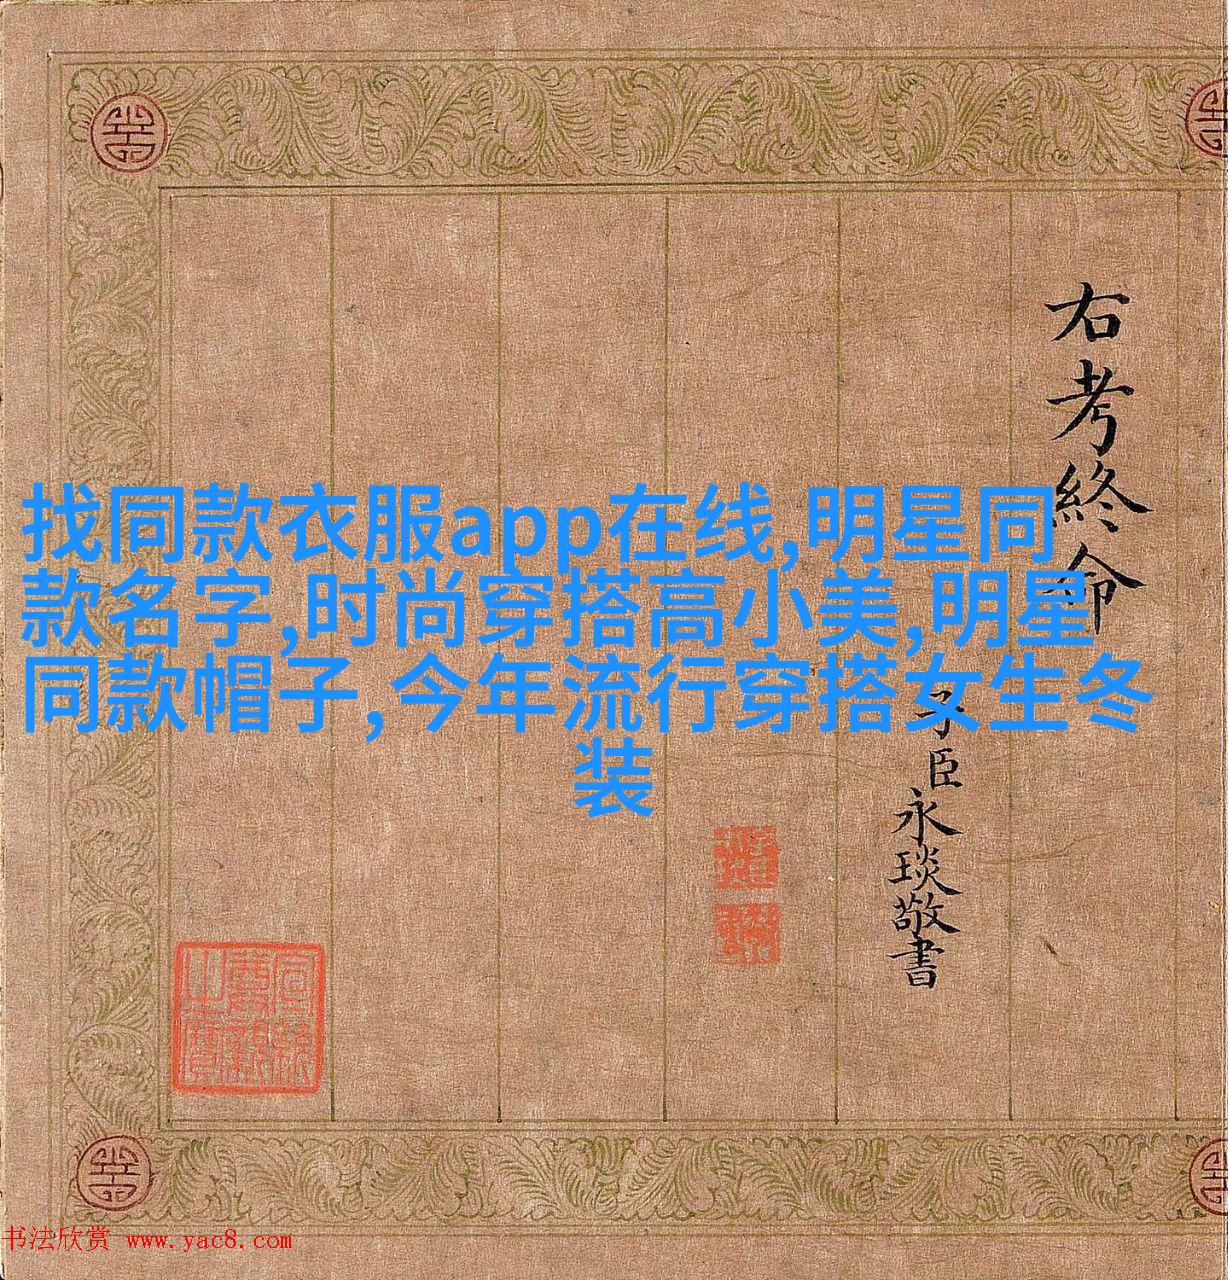 找同款衣服app在线,明星同
款名字,时尚穿搭高小美,明星
同款帽子,今年流行穿搭女生冬
装
右考終命
子臣永琰敬書
书法欣赏 www.yac8.com